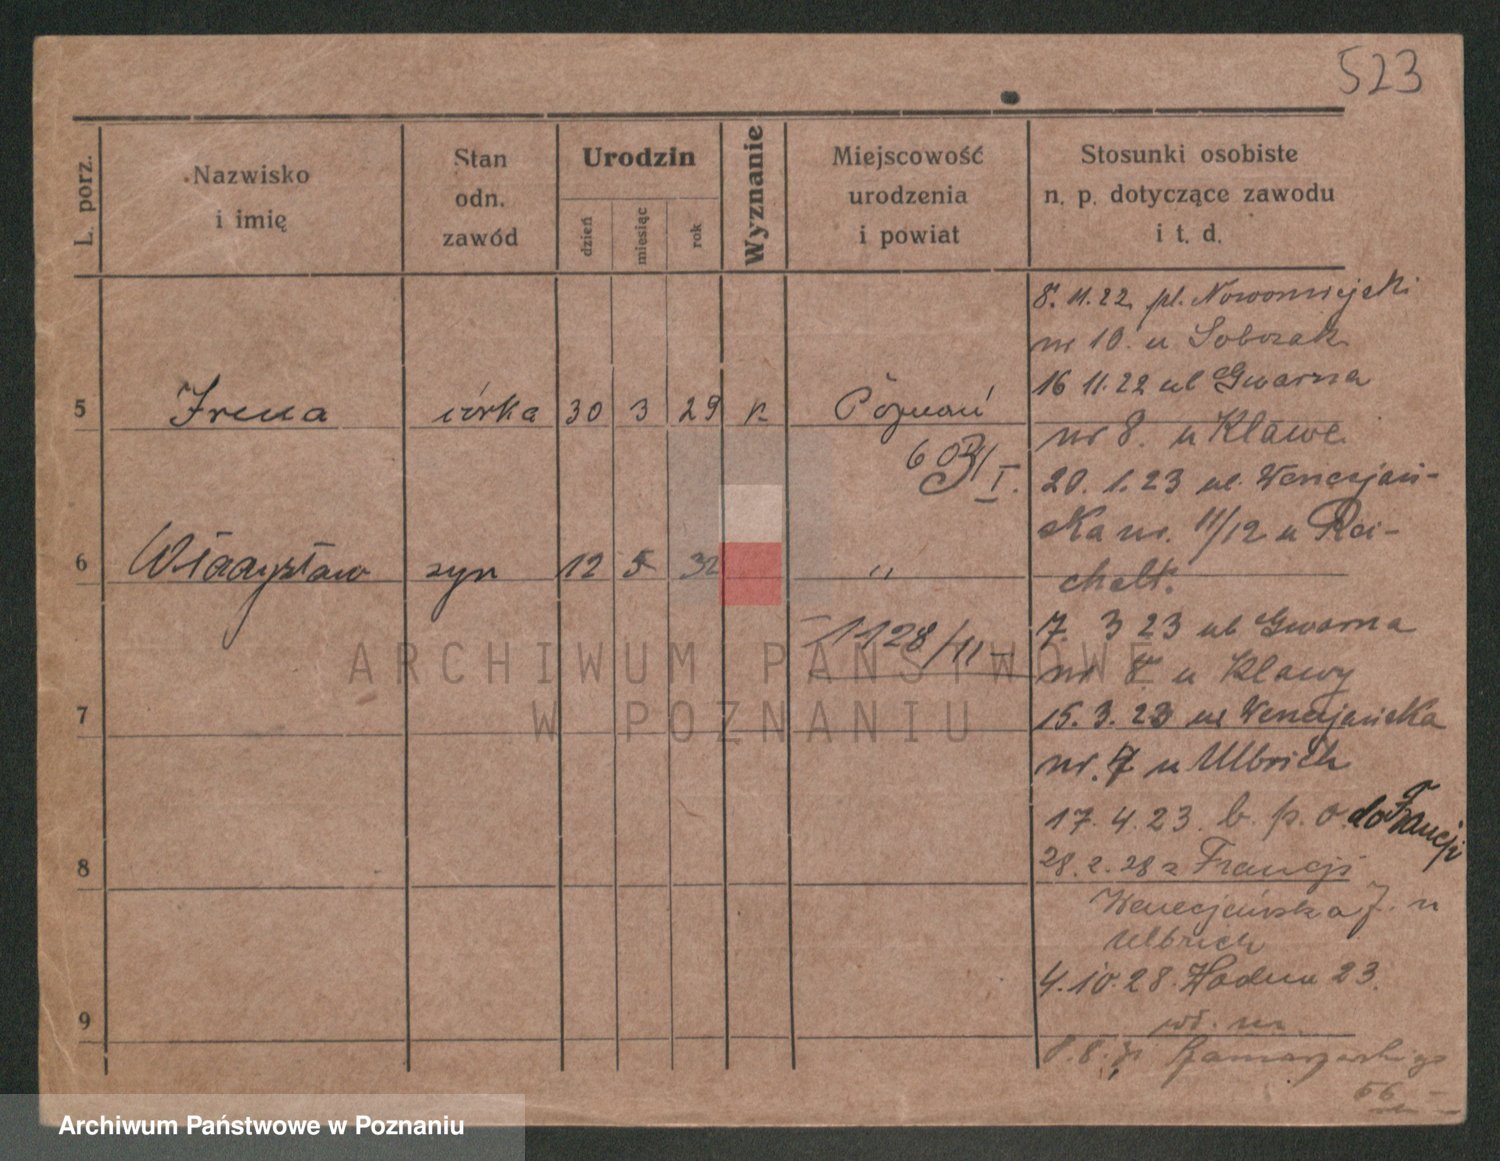 523
L. porz.
Nazwisko
i imię
Stan
odn.
zawód
Urodzin
dzień
miesiąc
rok
Wyznanie
Miejscowość
urodzenia
i powiat
Stosunki osobiste
n. p. dotyczące zawodu
i t. d.
5 Irena córka 30 3 29 k Poznań
6 Władysław syn 12 5 32 "
1128/III
7
8
9
8. 11. 22 pl. Nowomiejski
nr 10. u Sobczak
16 11. 22 ul Gwarna
nr 8. u Klawe
20. 1. 23 ul. Wenecjań-
ska nr. 11/12 u Rei-
chelt.
7. 3 23 ul Gwarna
nr 8 u Klawy
15. 3. 23 ul Wenecjańska
nr. 7 u Ulbrich
17. 4. 23. b. p. o. do Francji
28. 2. 28 z Francji
Wenecjańska 7. u
Ulbrich
4. 10. 28. Wodna 23.
ARCHIWUM PAŃSTWOWE
W POZNANIU
Archiwum Państwowe w Poznaniu